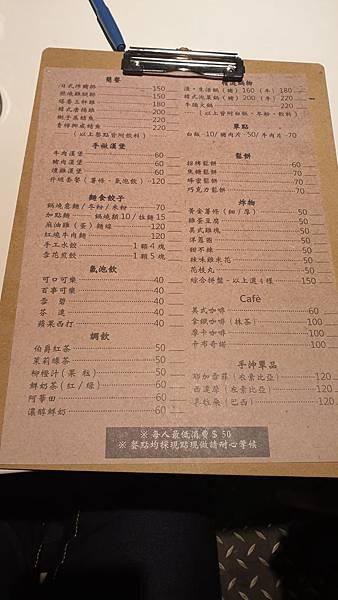 簡餐
日式炸豬排 150
照燒雞腿排 150
塔香三杯雞 180
韓式唐揚雞 180
椒鹽鯖魚 220
青檸椰咸鯖魚 220
(以上餐點皆附飲料)
手做漢堡
牛肉漢堡 60
豬肉漢堡 60
燻雞漢堡 60
升級套餐(薯條、氣泡飲) 120
麵食餃子
鍋燒意麵/冬粉/米粉 70
加點麵 鍋燒類10/拉麵15
麻油雞(蛋)麵線 120
紅燒牛肉麵 120
手工水餃 1顆4塊
韭花煎餃 1顆5塊
氣泡飲
可口可樂 40
百事可樂 40
雪碧 40
芬達 40
蘋果西打 40
調飲
伯爵紅茶 50
茉莉綠茶 50
柳橙汁(果粒) 50
鮮奶茶(紅/綠) 60
阿華田 60
濃醇鮮奶 60
鍋物
(豬)160(牛)180
韓式泡菜鍋(豬)200(牛)220
牛腩火鍋 220
(以上皆附白飯、冬粉、飲料)
單點
白飯-10/豬肉片-50/牛肉片-70
鬆餅
招牌鬆餅 60
焦糖鬆餅 70
蜂蜜鬆餅 70
巧克力鬆餅 70
炸物
黃金薯條(細/厚) 50
雞蛋豆腐 50
美式雞塊 50
洋蔥圈 50
甜不辣 50
辣味雞米花 50
花枝丸 50
綜合拼盤-以上選4樣 150
Cafè
美式咖啡 60
拿鐵咖啡(抹茶) 100
摩卡咖啡 100
卡布奇諾 100
手沖單品
耶加雪菲(衣索比亞) 120
西達摩(衣索比亞) 120
聖拉朵(巴西) 120
※每人最低消費$50
※餐點均採現點現做請耐心等候